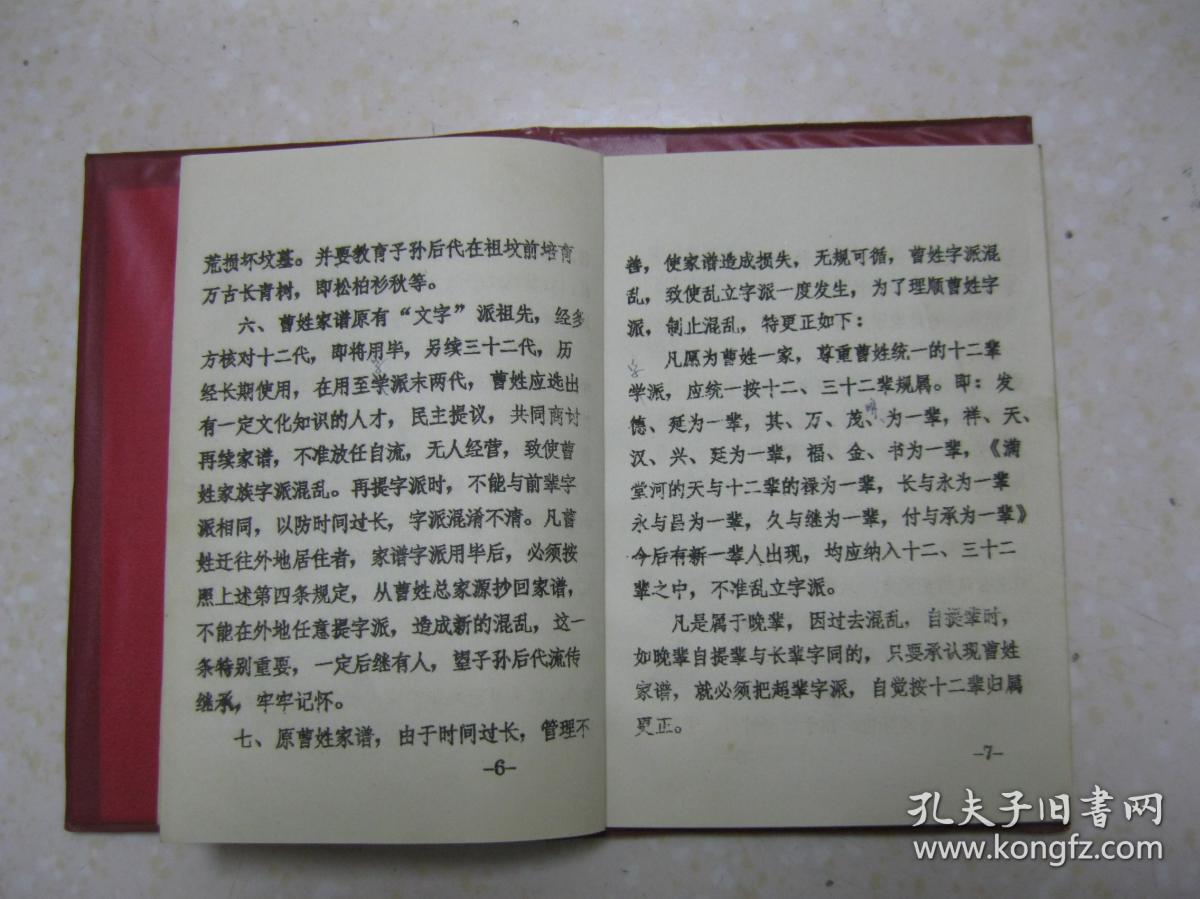 荒损坏坟墓。并要教育子孙后代在祖坟前培育
万古长青树，即松柏衫秋等。
六、曹姓家谱原有“文字”派祖先，经多
方核对十二代，即将用毕，另续三十二代，历
经长期使用，在用至学派末两代，曹姓应选出
字
有一定文化知识的人才，民主提议，共同商讨
再续家谱，不准放任自流，无人经营，致使曹
姓家族字派混乱。再提字派时，不能与前辈字
派相同，以防时间过长，字派混淆不清。凡曹
姓迁往外地居住者，家谱字派用毕后，必须按
照上述第四条规定，从曹姓总家源抄回家谱，
不能在外地任意提字派，造成新的混乱，这一
条特别重要，一定后继有人，望子孙后代流传
继承，牢牢记怀。
七、原曹姓家谱，由于时间过长，管理不
-6-
善，使家谱造成损失，无规可循，曹姓字派混
乱，致使乱立字派一度发生，为了理顺曹姓字
派，制止混乱，特更正如下：
凡愿为曹姓一家，尊重曹姓统一的十二辈
字
学派，应统一按十二、三十二辈规属。即：发
德、延为一辈，其、万、茂、明为一辈，祥、天、
汉、兴、廷为一辈，福、金、书为一辈，《满
堂河的天与十二辈的禄为一辈，长与永为一辈
永与吕为一辈，久与继为一辈，付与承为一辈》
今后有新一辈人出现，均应纳入十二、三十二
辈之中，不准乱立字派。
凡是属于晚辈，因过去混乱，自提辈时，
如晚辈自提辈与长辈字同的，只要承认现曹姓
家谱，就必须把超辈字派，自觉按十二辈归属
更正。
-7-
孔夫子旧书网
www.kongfz.com